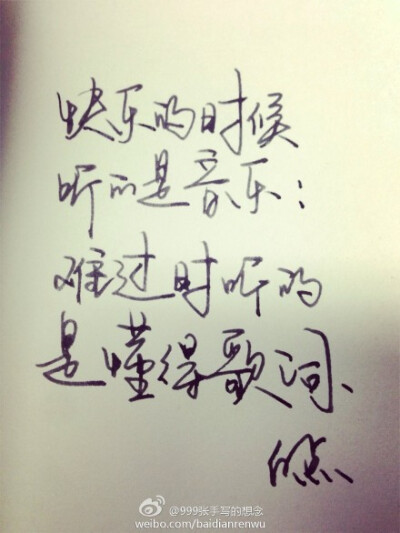 快乐的时候
听的是音乐：
难过时听的
是懂得歌词、
白点
@999张手写的想念
weibo.com/baidianrenwu